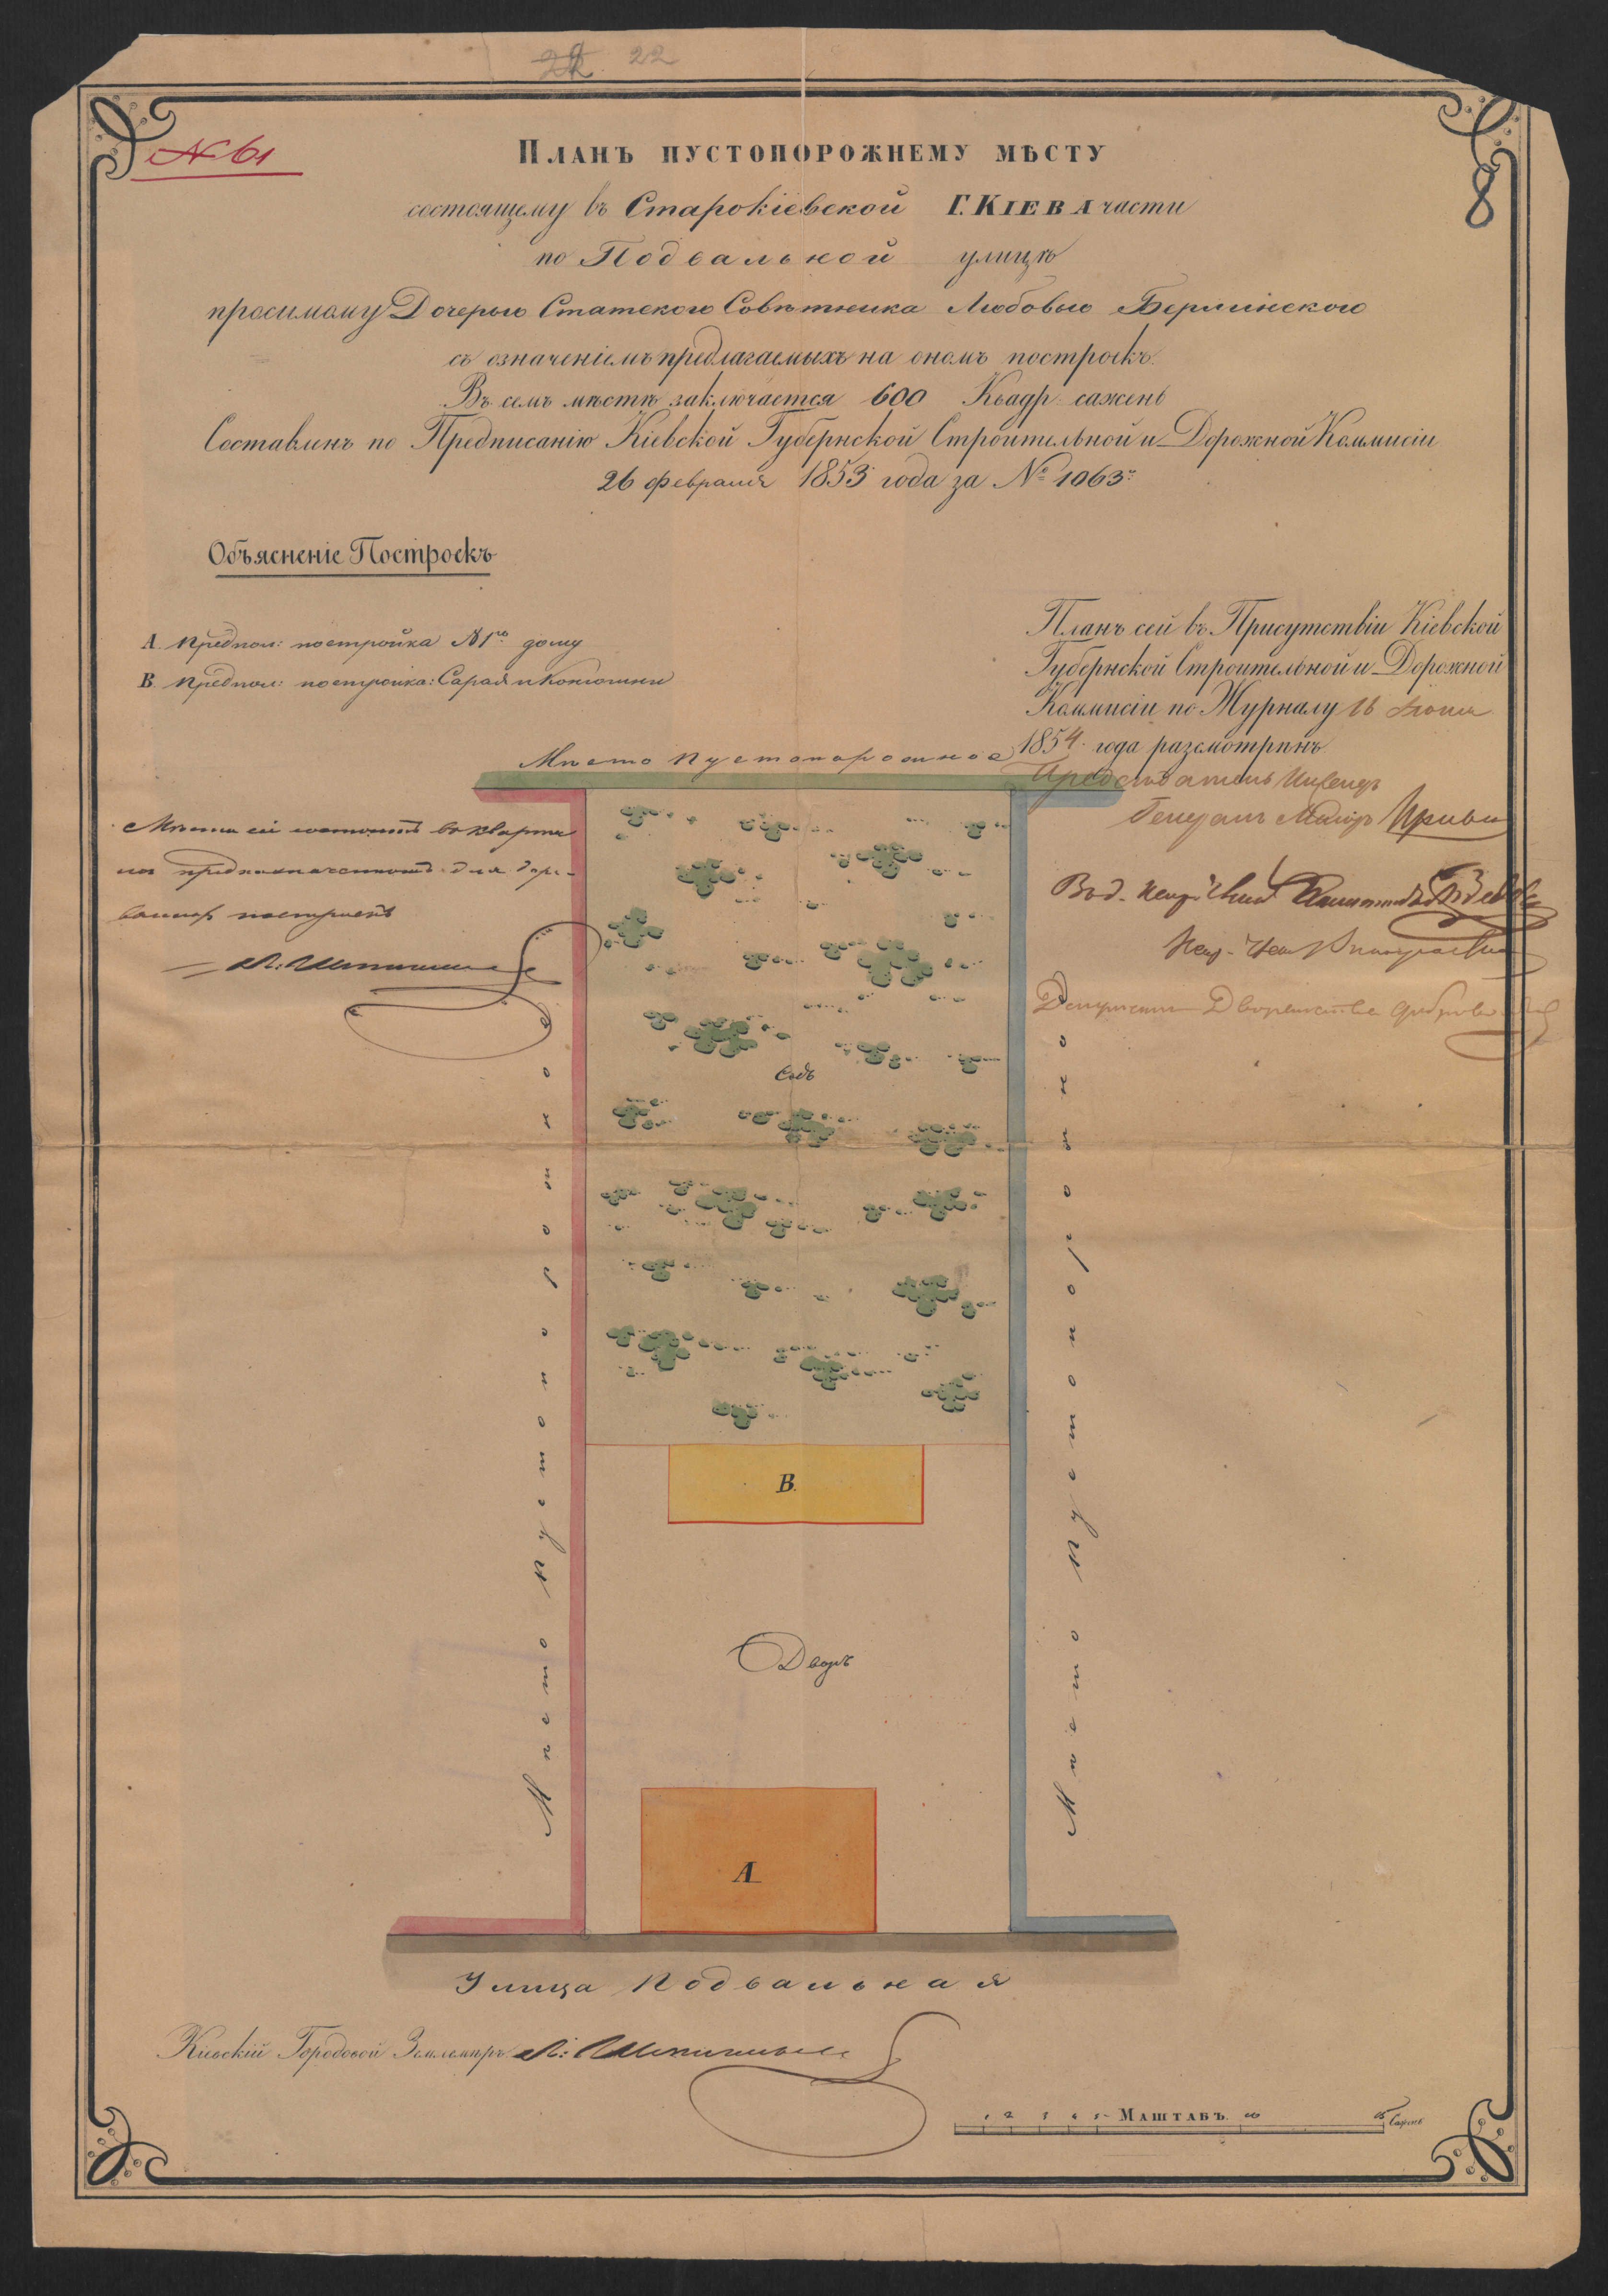 22
№ 61
8
Планъ пустопорожнему мѣсту
состоящему въ Старокіевской Г. Кіева части
по Подвальной улицѣ
просимому Дочерью Статского Совѣтника Любовью Берлинского
съ означеніемъ предлагаемыхъ на ономъ построекъ.
Въ семъ мѣстѣ заключается 600 Квадр. сажень
Составленъ по Предписанію Кіевской Губернской Строительной и Дорожной Коммисіи
26 февраля 1853 года за № 1063.
Объясненіе Построекъ
А. предпол: постройка № 1го дому
В. предпол: постройка: Сарая и Конюшни
Планъ сей въ Присутствіи Кіевской
Губернской Строительной и Дорожной
Коммисіи по Журналу 16
1854 года разсмотрѣнъ
Предсѣдатель Инженеръ
Генералъ Маіоръ
Депутатъ Дворянства
Мѣсто пустопорожнее
Мѣсто сіе состоитъ въ кварта
лѣ предназначенномъ для дере-
вянныхъ построекъ
Садъ
Мѣсто пустопорожнее
Мѣсто пустопорожнее
В.
Дворъ
А
Улица Подвальная
Кіевскій Городовой Землемѣръ
1 2 3 4 5 Маштабъ. 10 15 Сажень